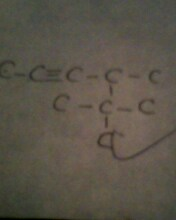 C-C≡C-C-C
C-C-C
C